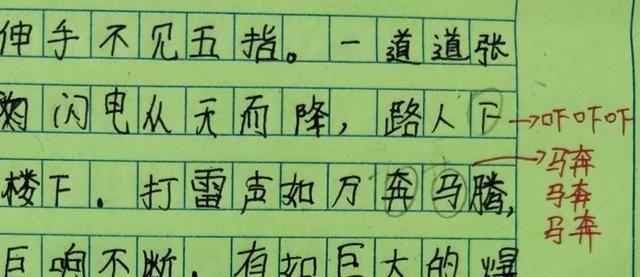 伸手不见五指。一道道张
闪电从天而降，路人下→吓吓吓
楼下．打雷声如万奔马腾，→马奔
马奔
马奔
巨响不断，有如巨大的爆